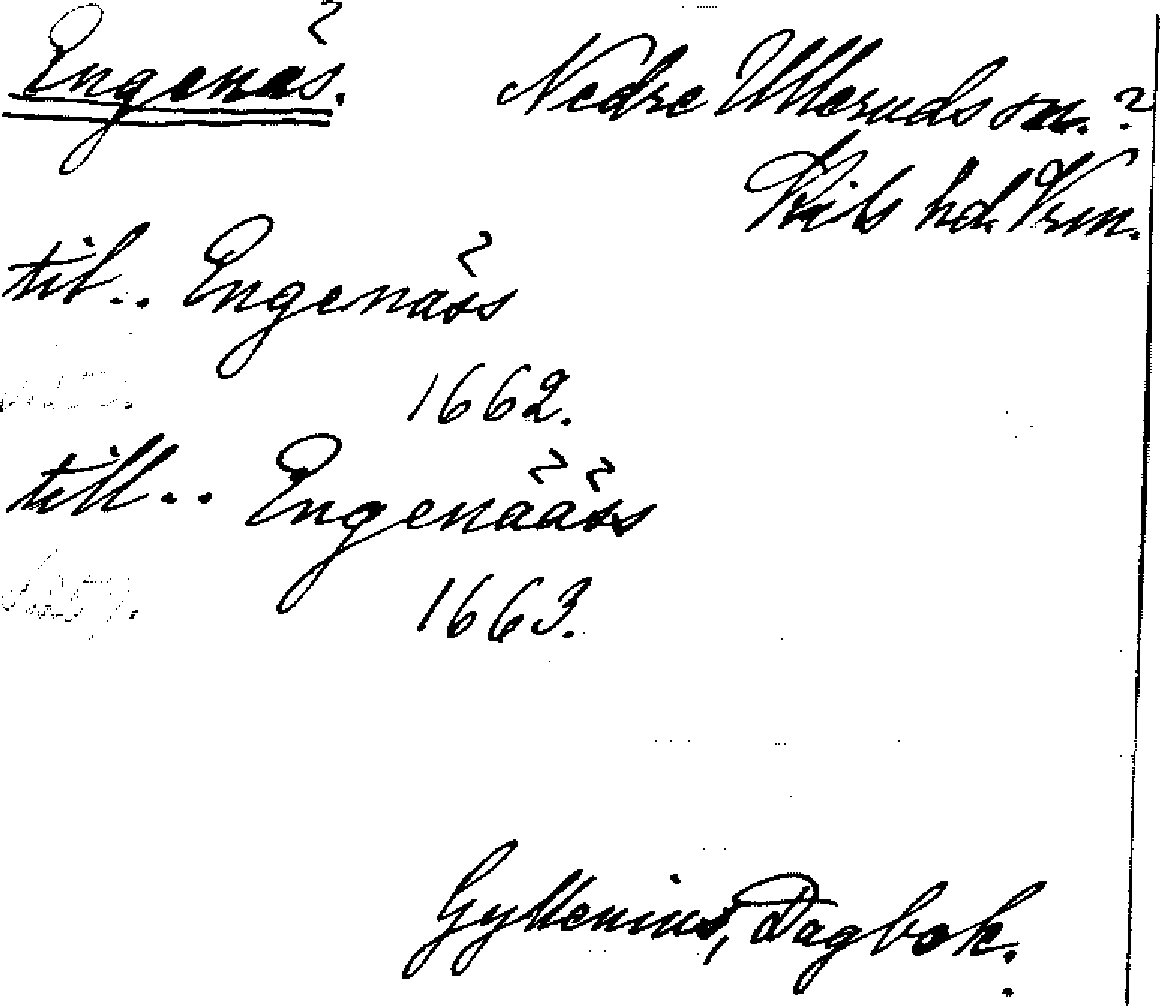 Engenäs. Nedre Ulleruds sn. ?
Kils hd. Vrm.
til.. Engenäss
1662.
till.. Engenääss
1663.
Gyllenius, Dagbok.